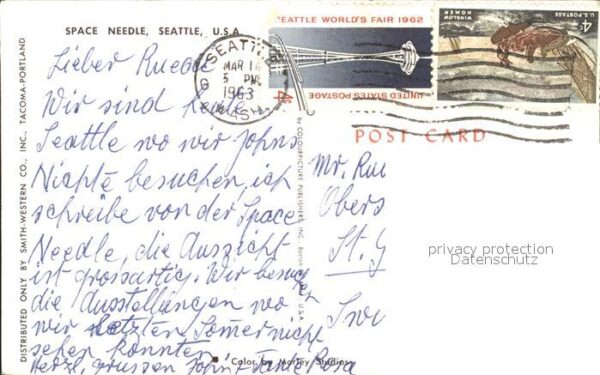 SPACE NEEDLE, SEATTLE, U.S.A.
SEATTLE WORLD'S FAIR 1962
UNITED STATES POSTAGE
4¢
WINSLOW HOMER
U.S. POSTAGE
4¢
SEATTLE
MAR 14
5 PM
1963
WASH.
POST CARD
Lieber
Wir sind heute
Seattle wo wir Johns
Nichte besuchen, ich
schreibe von der Space
Needle, die Auszicht
ist grossartig. Wir besuch
die Ausstellungen wo
wir letzten Somer nicht
sehen konnten
Herzl. grussen John + Tante Rosa
Mr.
Obers
St. G
Swi
privacy protection
Datenschutz
DISTRIBUTED ONLY BY SMITH-WESTERN CO., INC., TACOMA-PORTLAND
by COLOURPICTURE PUBLISHERS, INC., U.S.A.
Color by Morley Studios